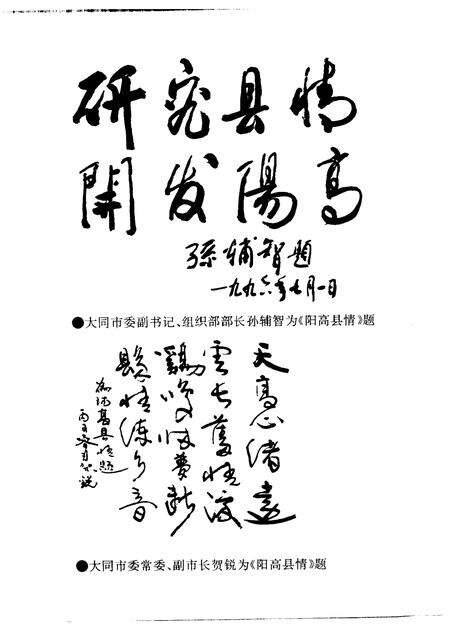 研究县情
開发陽高
孫辅智题
一九九六年七月一日
●大同市委副书记、组织部部长孙辅智为《阳高县情》题
天高心绪遠
雲长舊情深
鷄夢断
縣情乡音
为阳高县情题
丙子春月锐
●大同市委常委、副市长贺锐为《阳高县情》题